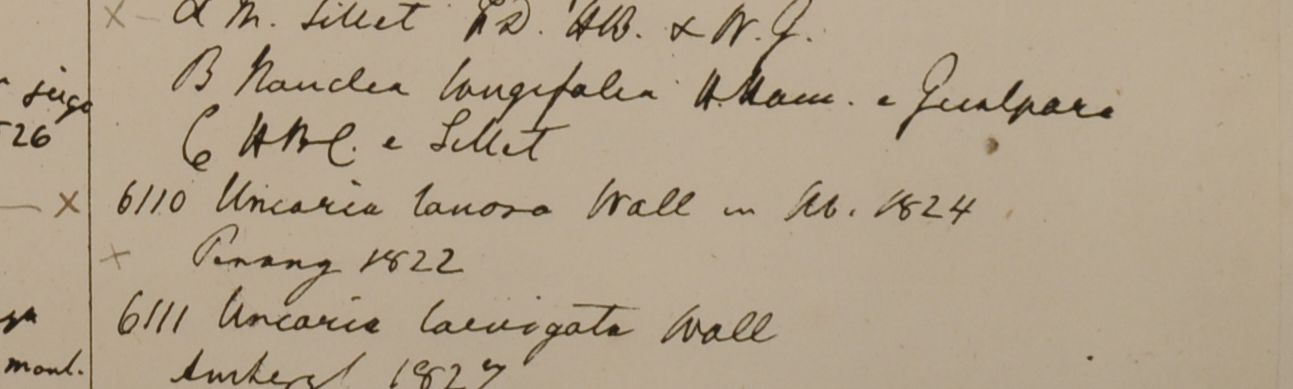 & M. Sillet F.D. HB. & W.G.
B Nauclea longifolia H.Ham. e Gualpara
C HBC. e Sillet
6110 Uncaria lanosa Wall in HB. 1824
Penang 1822
6111 Uncaria laevigata Wall
Amherst 1827
26
mont.